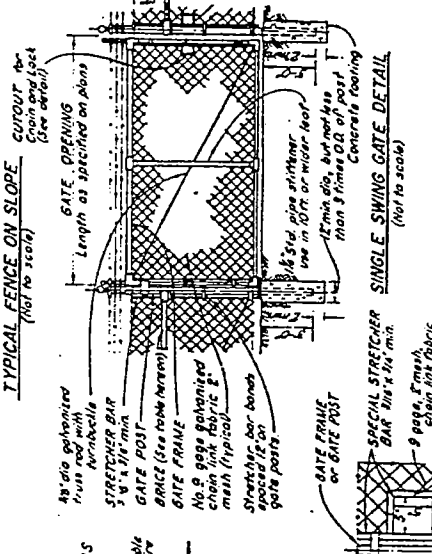 TYPICAL FENCE ON SLOPE
(Not to scale)
CUTOUT for
Chain and Lock
(See detail)
GATE OPENING
Length as specified on plans
galvanized
truss rod with
turnbuckle
STRETCHER BAR
min.
GATE POST
BRACE (See table hereon)
GATE FRAME
No. 9 gage galvanized
chain link fabric 2"
mesh (typical)
Stretcher bar bands
spaced 12" on
gate posts.
Std. pipe stiffener
use in 10 ft. or wider leaf
12" min. dia, but not less
than 3 times O.D. of post
Concrete footing
SINGLE SWING GATE DETAIL
(Not to scale)
GATE FRAME
or GATE POST
SPECIAL STRETCHER
BAR 3/16" x 3/4" min.
9 gage, 2" mesh,
chain link fabric